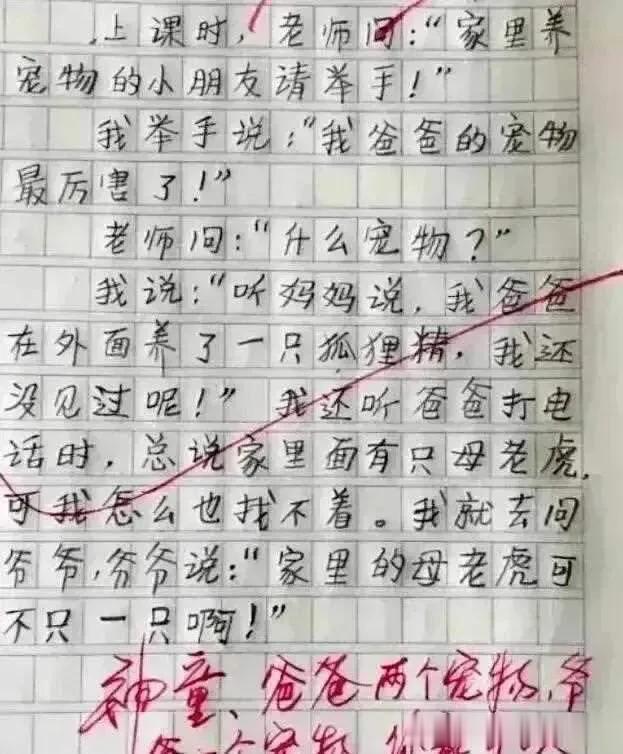 上课时，老师问：“家里养
宠物的小朋友请举手！”
我举手说：“我爸爸的宠物
最厉害了！”
老师问：“什么宠物？”
我说：“听妈妈说，我爸爸
在外面养了一只狐狸精，我还
没见过呢！”我还听爸爸打电
话时，总说家里面有只母老虎，
可我怎么也找不着。我就去问
爷爷，爷爷说：“家里的母老虎可
不只一只啊！”
神童、爸爸两个宠物，爷
爷一个宠物